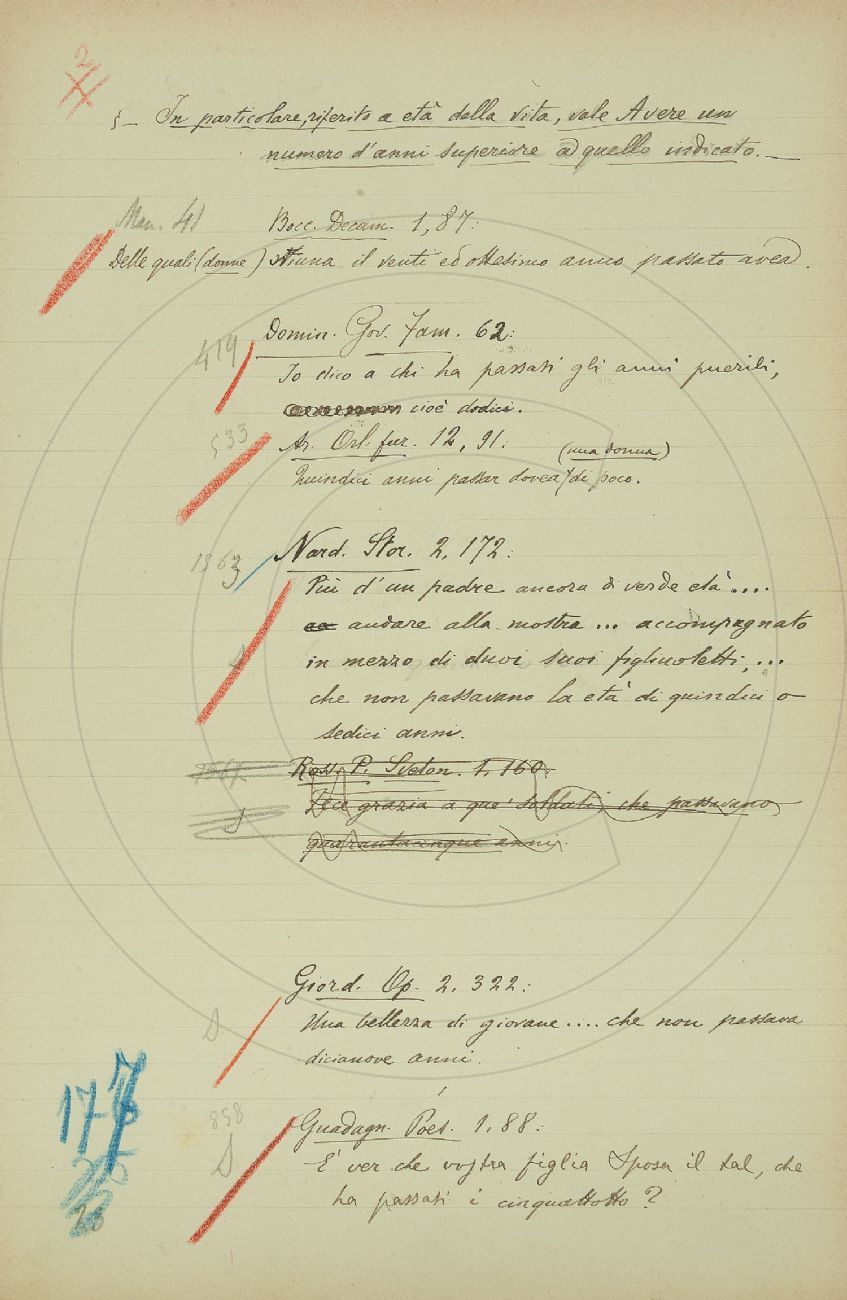 2
§ — In particolare, riferito a età della vita, vale Avere un
numero d'anni superiore a quello indicato. —
Man. 41 Bocc. Decam. 1, 87:
Delle quali (donne) Niuna il venti ed ottesimo anno passato avea.
419 Domin. Gov. Fam. 62:
Io dico a chi ha passati gli anni puerili,
cioè dodici.
533 Ar. Orl. fur. 12, 91:
(una donna)
Quindici anni passar dovea di poco.
1363 Nard. Stor. 2, 172:
Più d'un padre ancora di verde età....
andare alla mostra ... accompagnato
in mezzo di duoi suoi figliuoletti, ...
che non passavano la età di quindici o
sedici anni.
Ross. P. Sveton. 1, 160.
Fece grazia a que' soldati, che passavano
quarantacinque anni.
Giord. Op. 2. 322:
Una bellezza di giovane.... che non passava
dicianove anni.
858 Guadagn. Poes. 1, 88:
S
È ver che vostra figlia Sposa il tal, che
ha passati i cinquattotto?
17